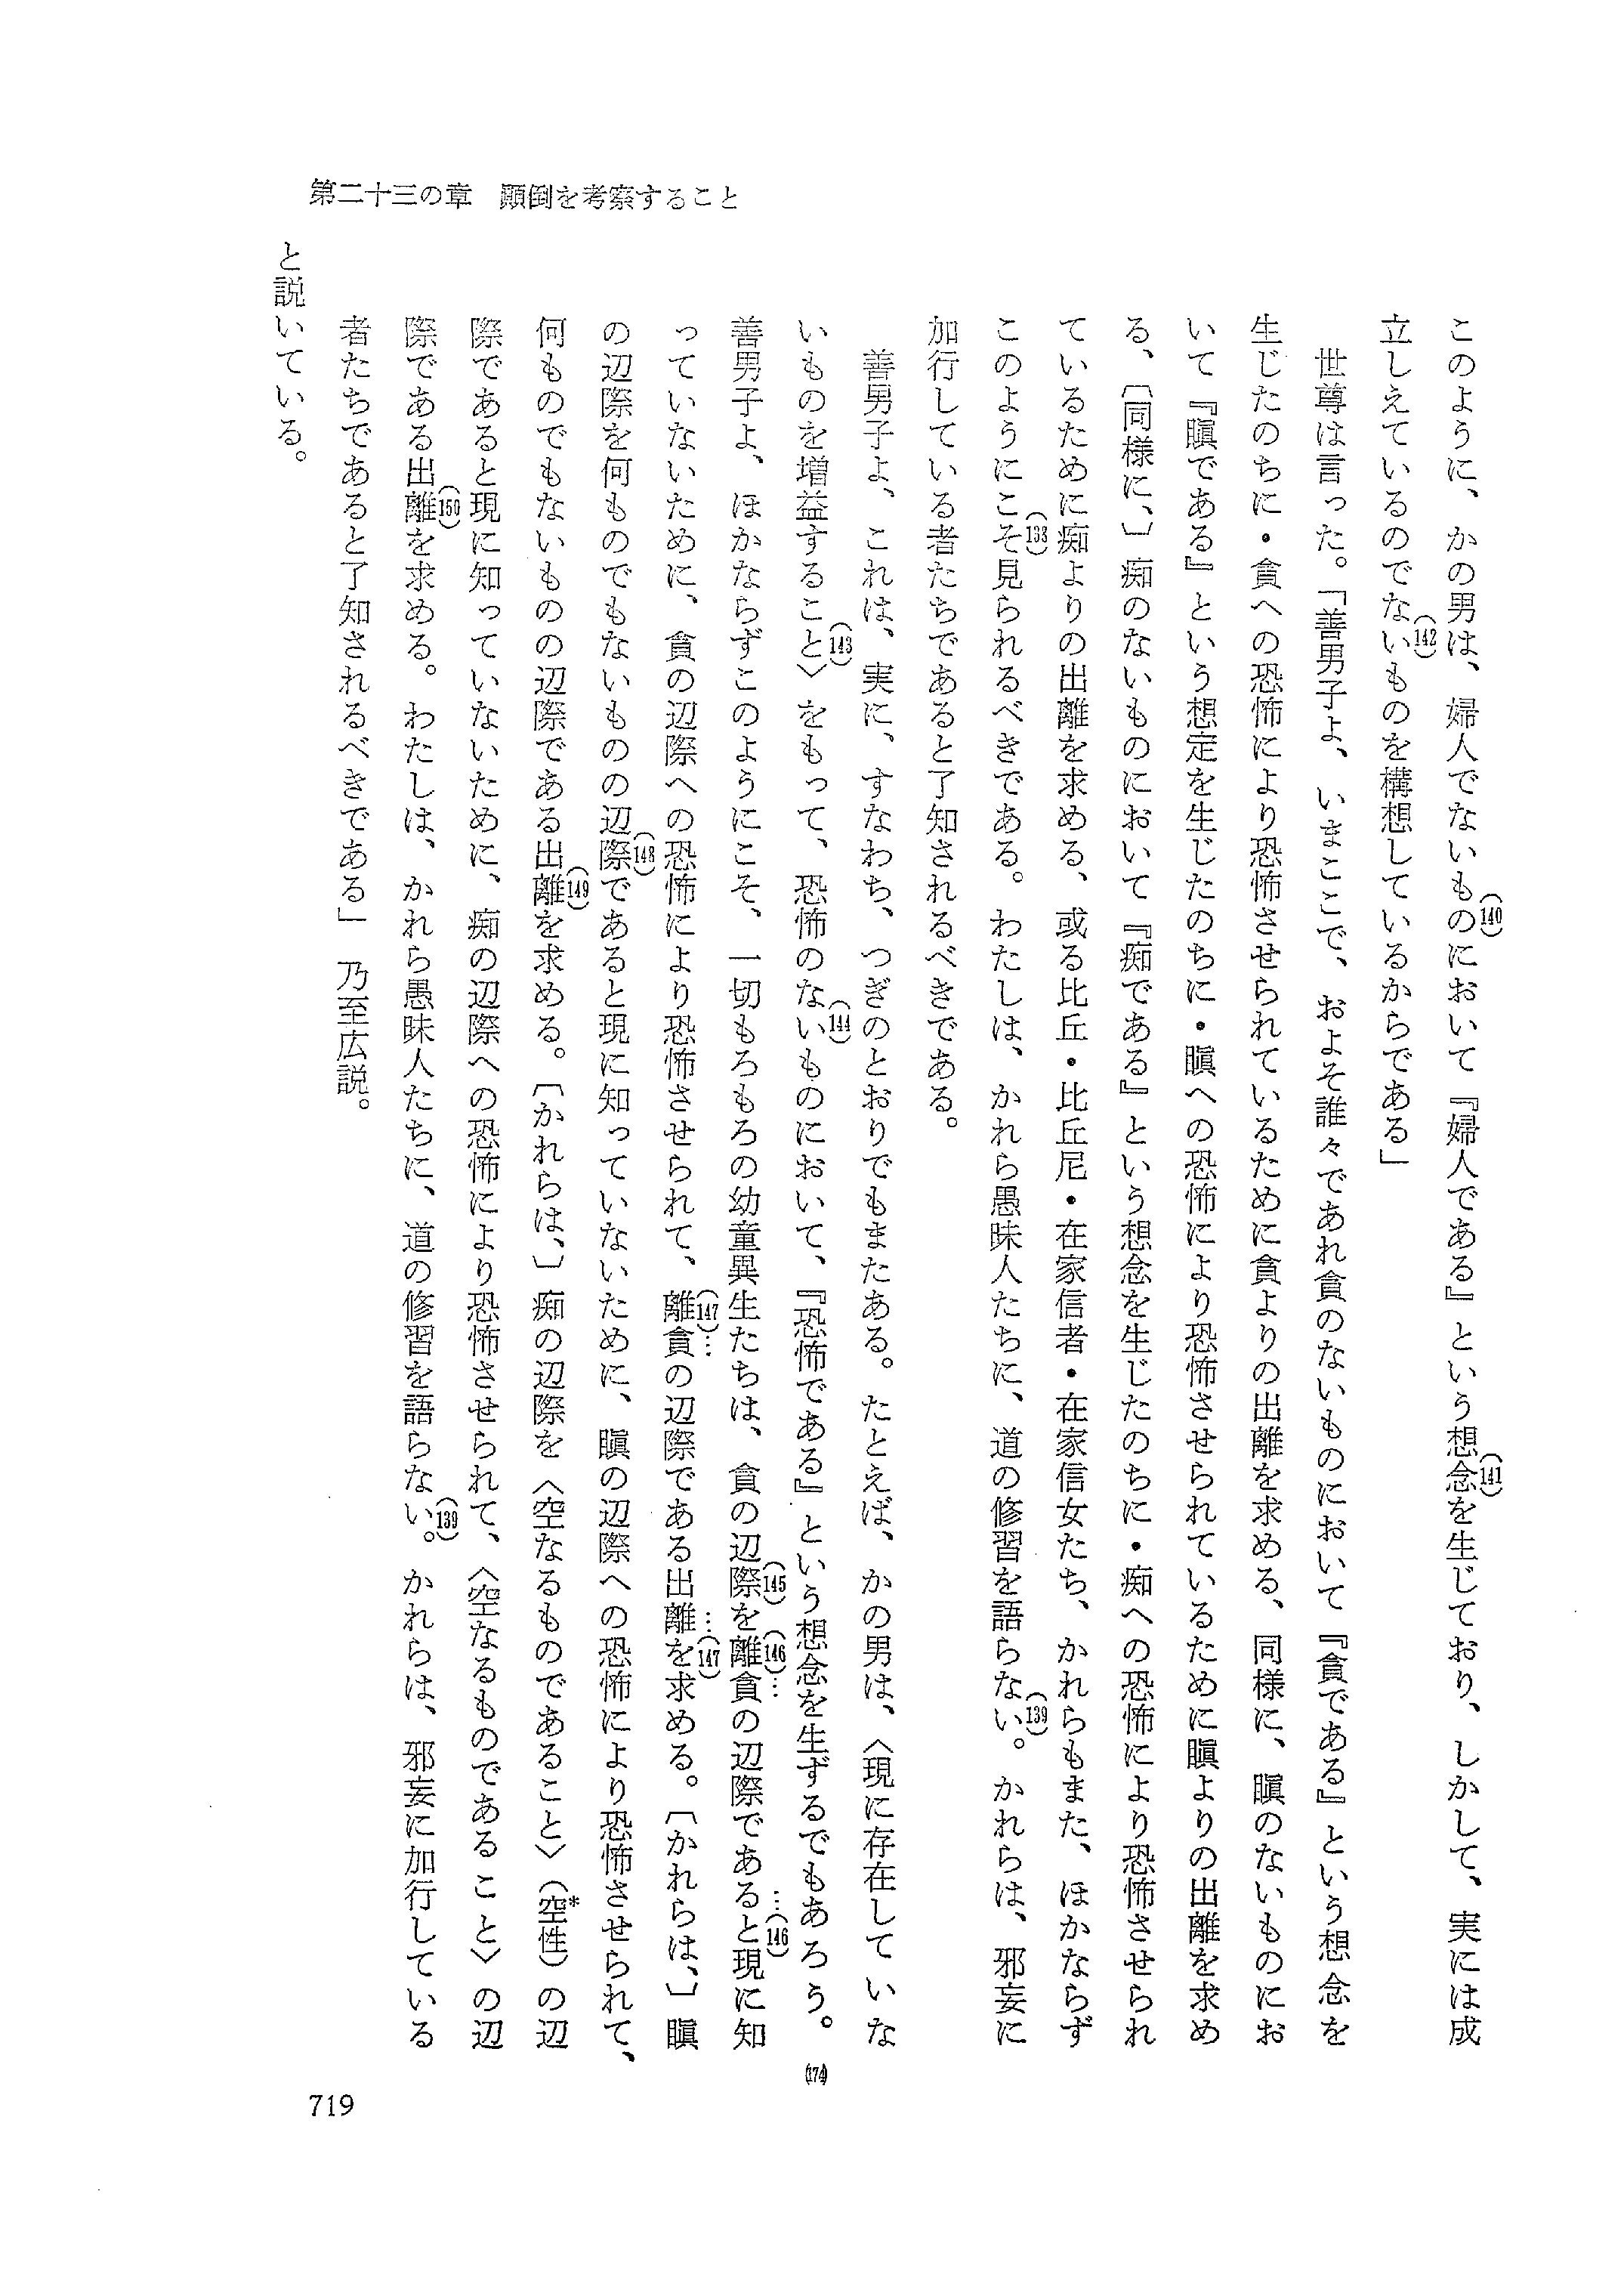 第二十三の章　顚倒を考察すること
このように、かの男は、婦人でないもの(140)において『婦人である』という想念(141)を生じており、しかして、実には成
立しえているのでない(142)ものを構想しているからである」
世尊は言った。「善男子よ、いまここで、およそ誰々であれ貪のないものにおいて『貪である』という想念を
生じたのちに・貪への恐怖により恐怖させられているために貪よりの出離を求める、同様に、瞋のないものにお
いて『瞋である』という想定を生じたのちに・瞋への恐怖により恐怖させられているために瞋よりの出離を求め
る、〔同様に、〕痴のないものにおいて『痴である』という想念を生じたのちに・痴への恐怖により恐怖させられ
ているために痴よりの出離を求める、或る比丘・比丘尼・在家信者・在家信女たち、かれらもまた、ほかならず
このようにこそ(133)見られるべきである。わたしは、かれら愚昧人たちに、道の修習を語らない(139)。かれらは、邪妄に
加行している者たちであると了知されるべきである。
善男子よ、これは、実に、すなわち、つぎのとおりでもまたある。たとえば、かの男は、〈現に存在していな
いものを増益すること(143)〉をもって、恐怖のない(144)ものにおいて、『恐怖である』という想念を生ずるでもあろう。
(174)
善男子よ、ほかならずこのようにこそ、一切もろもろの幼童異生たちは、貪の辺際(145)を離(146)…貪の辺際であると…(146)現に知
っていないために、貪の辺際への恐怖により恐怖させられて、離(147)…貪の辺際である出離…(147)を求める。〔かれらは、〕瞋
の辺際を何ものでもないものの辺際(148)であると現に知っていないために、瞋の辺際への恐怖により恐怖させられて、
何ものでもないものの辺際である出離(149)を求める。〔かれらは、〕痴の辺際を〈空なるものであること〉（空＊性）の辺
際であると現に知っていないために、痴の辺際への恐怖により恐怖させられて、〈空なるものであること〉の辺
際である出離(150)を求める。わたしは、かれら愚昧人たちに、道の修習を語らない(139)。かれらは、邪妄に加行している
者たちであると了知されるべきである」　乃至広説。
と説いている。
719